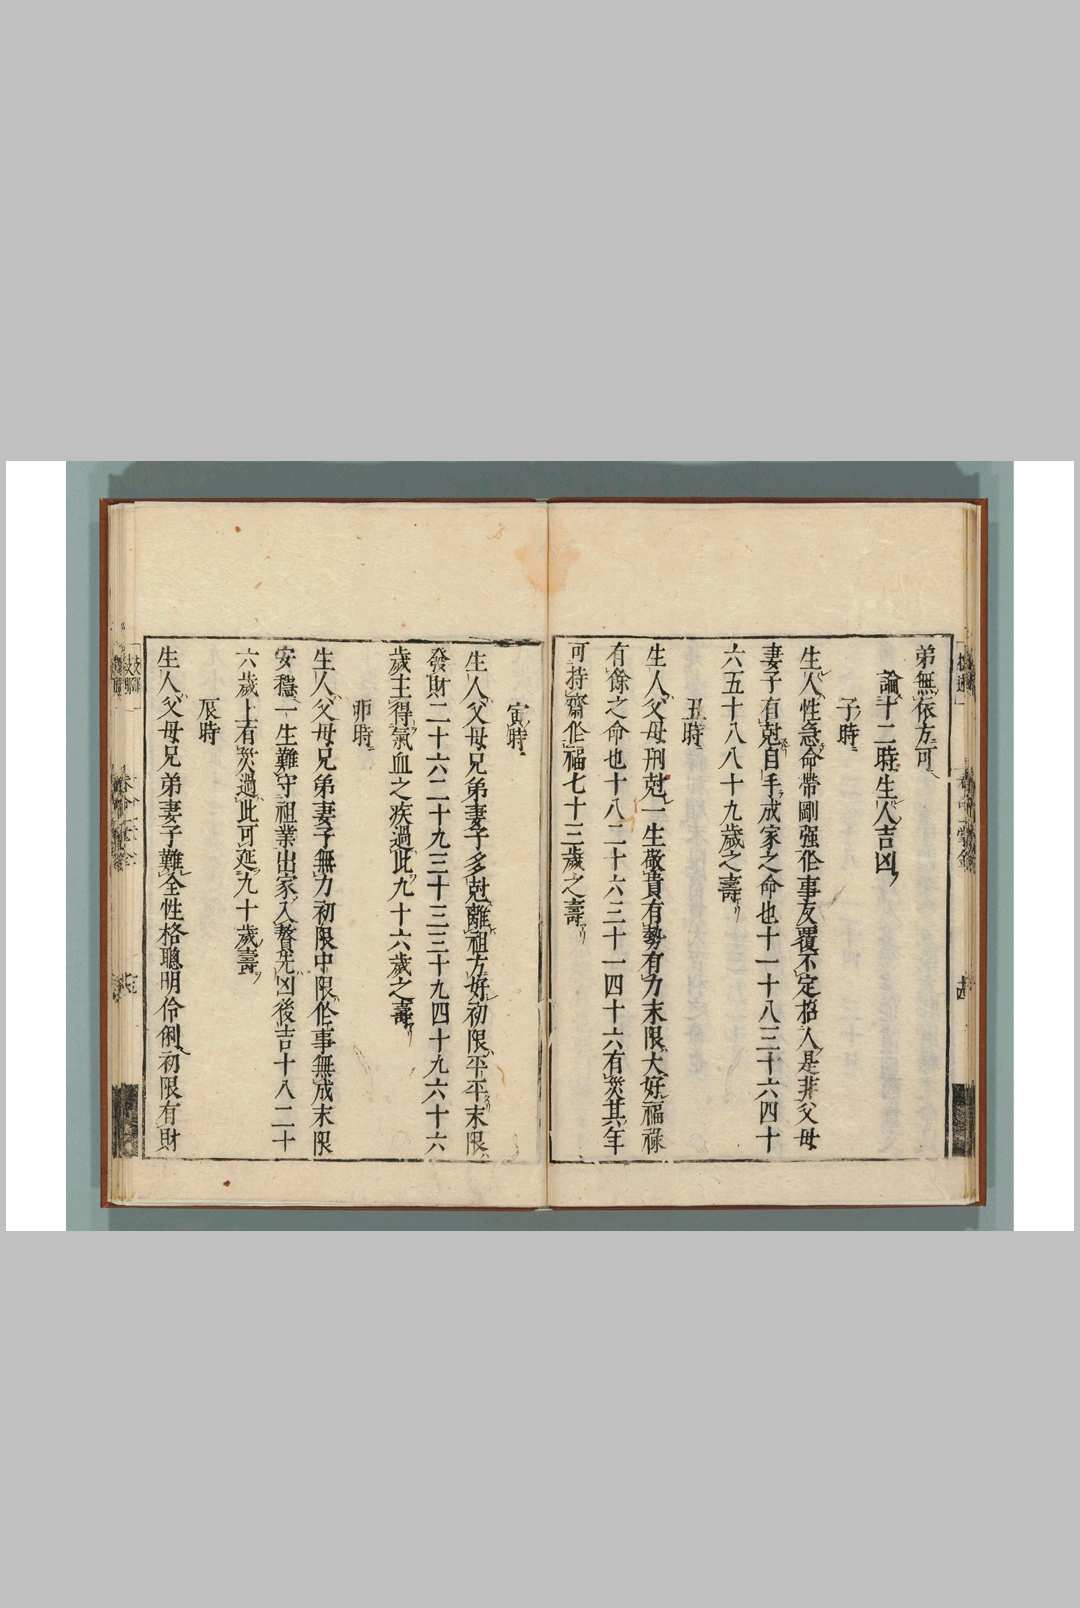 弟無依方可
論十二時生人吉凶
子時
生人性急命帶剛强作事反覆不定招人是非父母
妻子有尅自手成家之命也十一十八三十六四十
六五十八八十九歲之壽
丑時
生人父母刑尅一生敬貴有勢有力末限大好福祿
有餘之命也十八二十六三十一四十六有災其年
可持齋作福七十三歲之壽
寅時
生人父母兄弟妻子多尅離祖方好初限平平末限
發財二十六二十九三十三三十九四十九六十六
歲主得氣血之疾過此九十六歲之壽
卯時
生人父母兄弟妻子無力初限中限作事無成末限
安穩一生難守祖業出家入贅先凶後吉十八二十
六歲上有災過此可延九十歲壽
辰時
生人父母兄弟妻子難全性格聰明伶俐初限有財